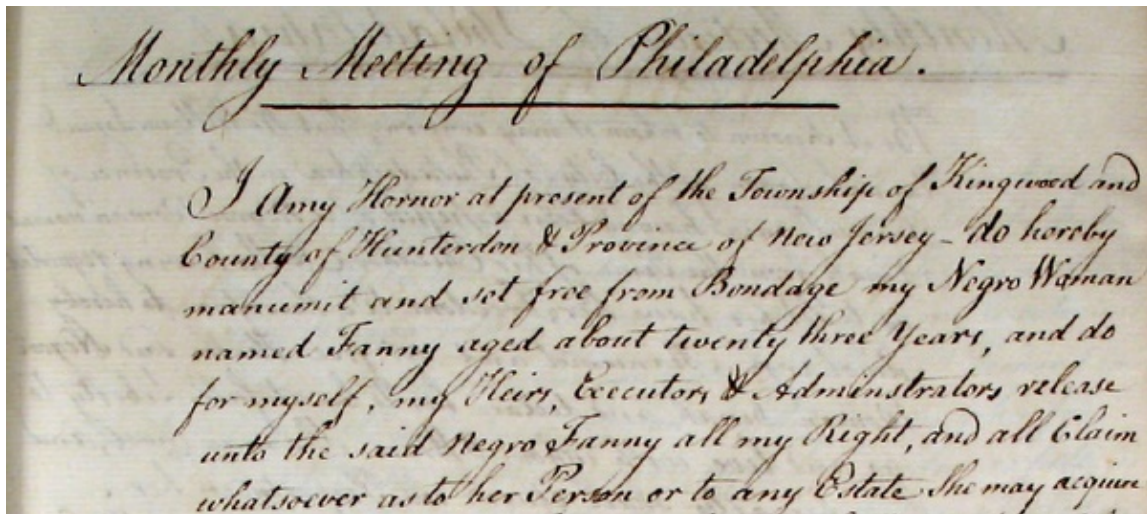 Monthly Meeting of Philadelphia.
I Amy Hornor at present of the Township of Kingwood and
County of Hunterdon & Province of New Jersey - do hereby
manumit and set free from Bondage my Negro Woman
named Fanny aged about twenty three Years, and do
for myself, my Heirs, Executors & Adminstrators release
unto the said Negro Fanny all my Right, and all Claim
whatsoever as to her Person or to any Estate She may acquire